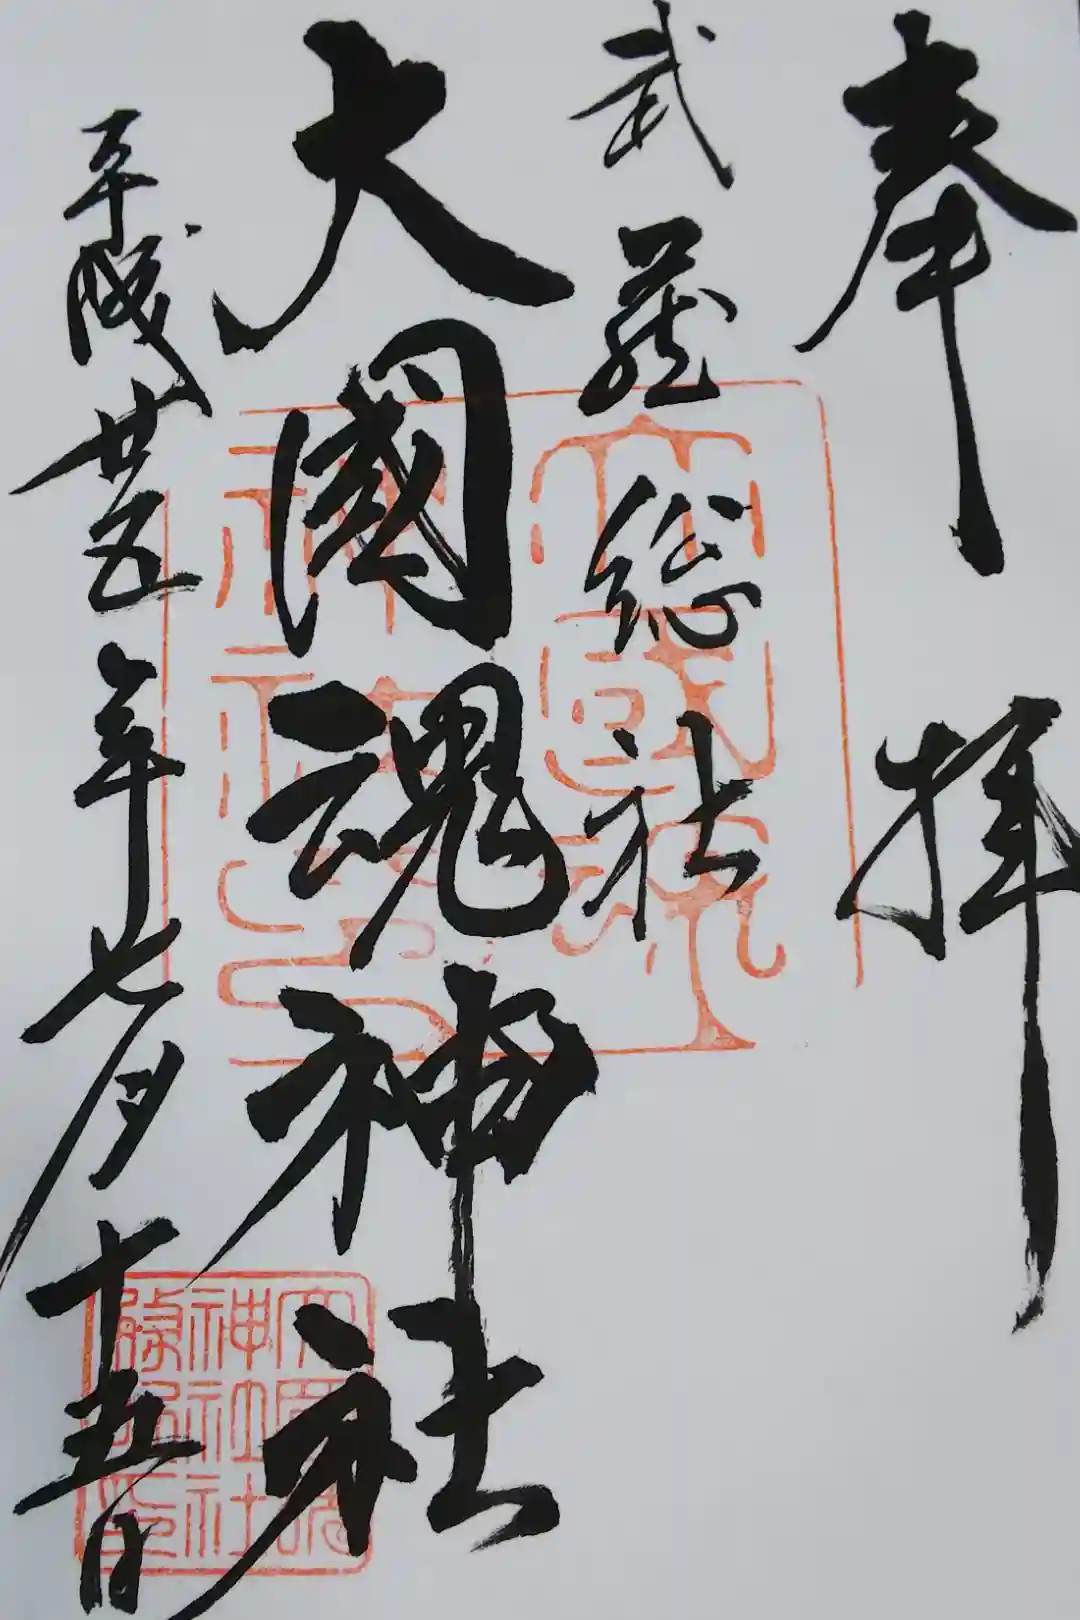 奉拝
武蔵総社
大國魂神社
平成廿五年七月十五日
大國魂
神社社
務所印